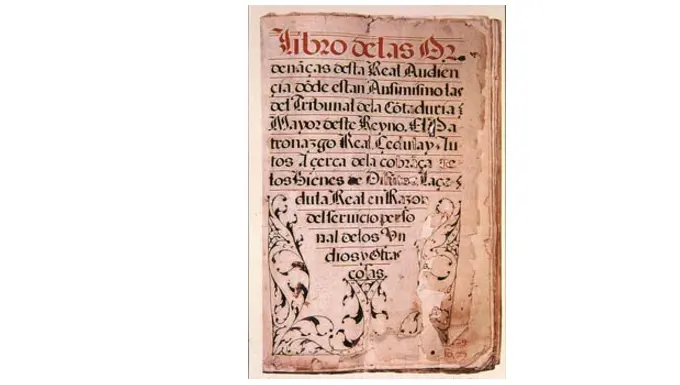 Libro de las Or
denãças desta Real Audien
çia dõde estan Ansimismo las
del Tribunal de la Cõtaduria
Mayor deste Reyno. El Pa
tronazgo Real, Cedulas y Au
tos Açerca de la cobrãça
los Bienes de çe
dula Real en Razon
del servicio perso
nal de los Yn
dios y Otras
cosas